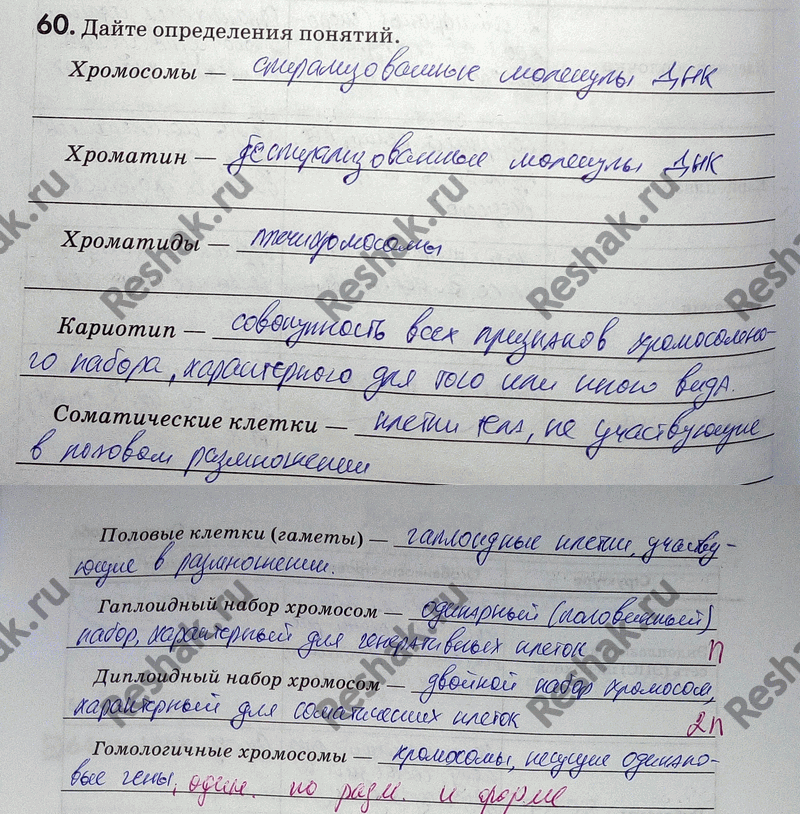 60. Дайте определения понятий.
Хромосомы — спирализованные молекулы ДНК
Хроматин — деспирализованные молекулы ДНК
Хроматиды — плечи хромосомы
Кариотип — совокупность всех признаков хромосомно-
го набора, характерного для того или иного вида.
Соматические клетки — клетки тела, не участвующие
в половом размножении
Половые клетки (гаметы) — гаплоидные клетки, участву-
ющие в размножении.
Гаплоидный набор хромосом — одинарный (половинный)
набор, характерный для генеративных клеток n
Диплоидный набор хромосом — двойной набор хромосом,
характерный для соматических клеток 2n
Гомологичные хромосомы — хромосомы, несущие одинако-
вые гены, один. по разм. и форме
Reshak.ru
Reshak.ru
Reshak.ru
Reshak.ru
Reshak.ru
Reshak.ru
Reshak.ru
Reshak.ru